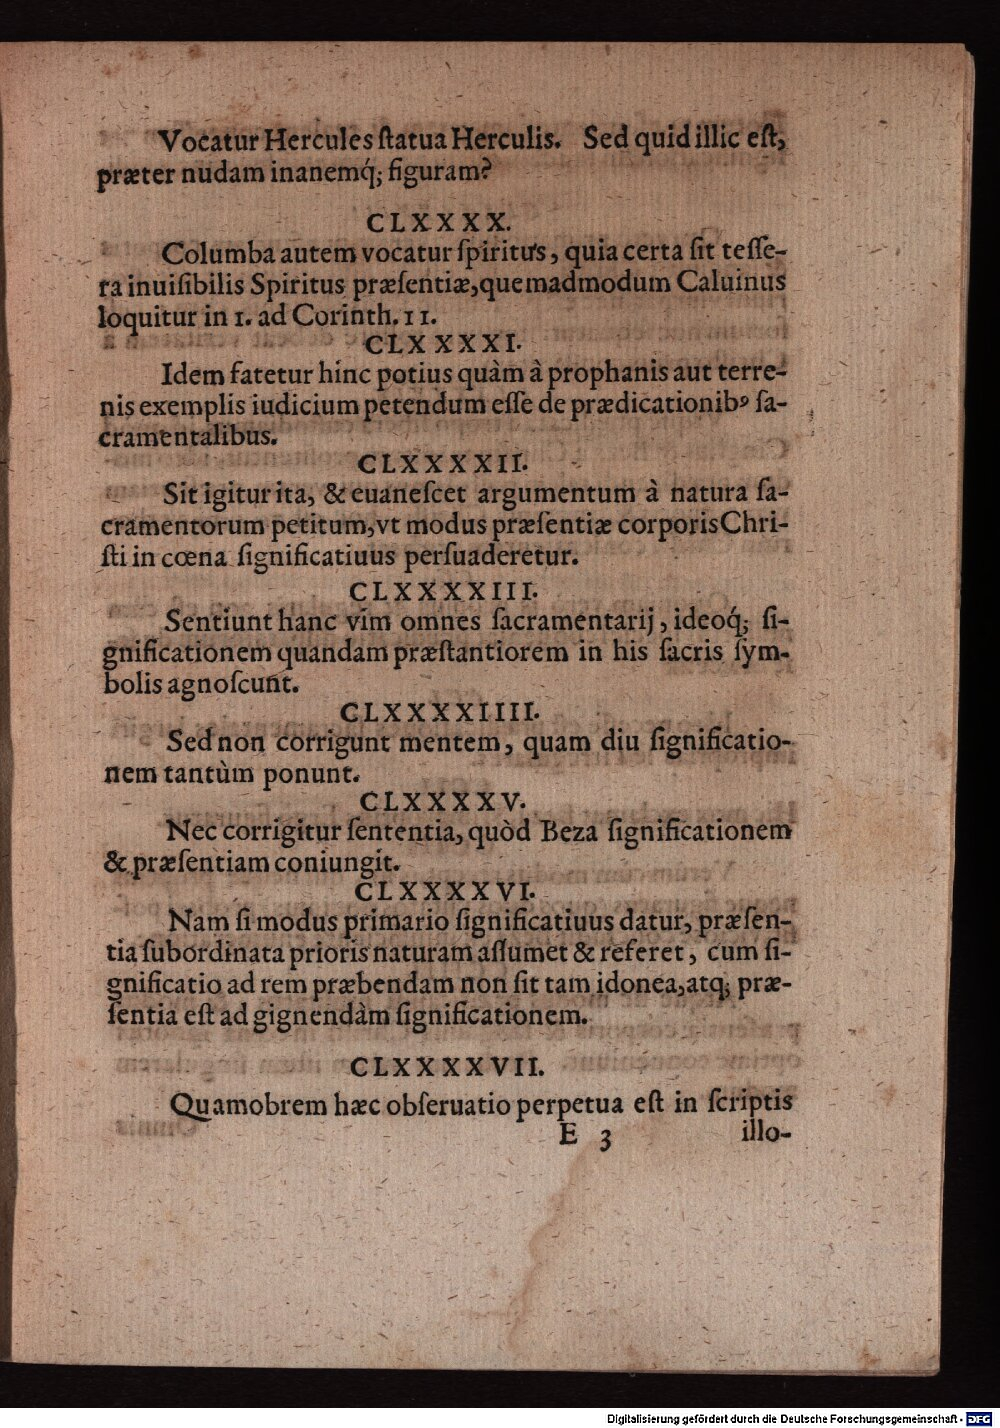 Vocatur Hercules ſtatua Herculis. Sed quid illic eſt,
præter nudam inanemq́; figuram?
CLXXXX.
Columba autem vocatur ſpiritus, quia certa ſit teſſe-
ra inuiſibilis Spiritus præſentiæ, quemadmodum Caluinus
loquitur in 1. ad Corinth. 11.
CLXXXXI.
Idem fatetur hinc potius quàm à prophanis aut terre-
nis exemplis iudicium petendum eſſe de prædicationibꝰ ſa-
cramentalibus.
CLXXXXII.
Sit igitur ita, & euaneſcet argumentum à natura ſa-
cramentorum petitum, vt modus præſentiæ corporis Chri-
ſti in cœna ſignificatiuus perſuaderetur.
CLXXXXIII.
Sentiunt hanc vim omnes ſacramentarij, ideoq́; ſi-
gnificationem quandam præſtantiorem in his ſacris ſym-
bolis agnoſcunt.
CLXXXXIIII.
Sed non corrigunt mentem, quam diu ſignificatio-
nem tantùm ponunt.
CLXXXXV.
Nec corrigitur ſententia, quòd Beza ſignificationem
& præſentiam coniungit.
CLXXXXVI.
Nam ſi modus primario ſignificatiuus datur, præſen-
tia ſubordinata prioris naturam aſſumet & referet, cum ſi-
gnificatio ad rem præbendam non ſit tam idonea, atq; præ-
ſentia eſt ad gignendàm ſignificationem.
CLXXXXVII.
Quamobrem hæc obſeruatio perpetua eſt in ſcriptis
E 3 illo-
Digitalisierung gefördert durch die Deutsche Forschungsgemeinschaft - DFG